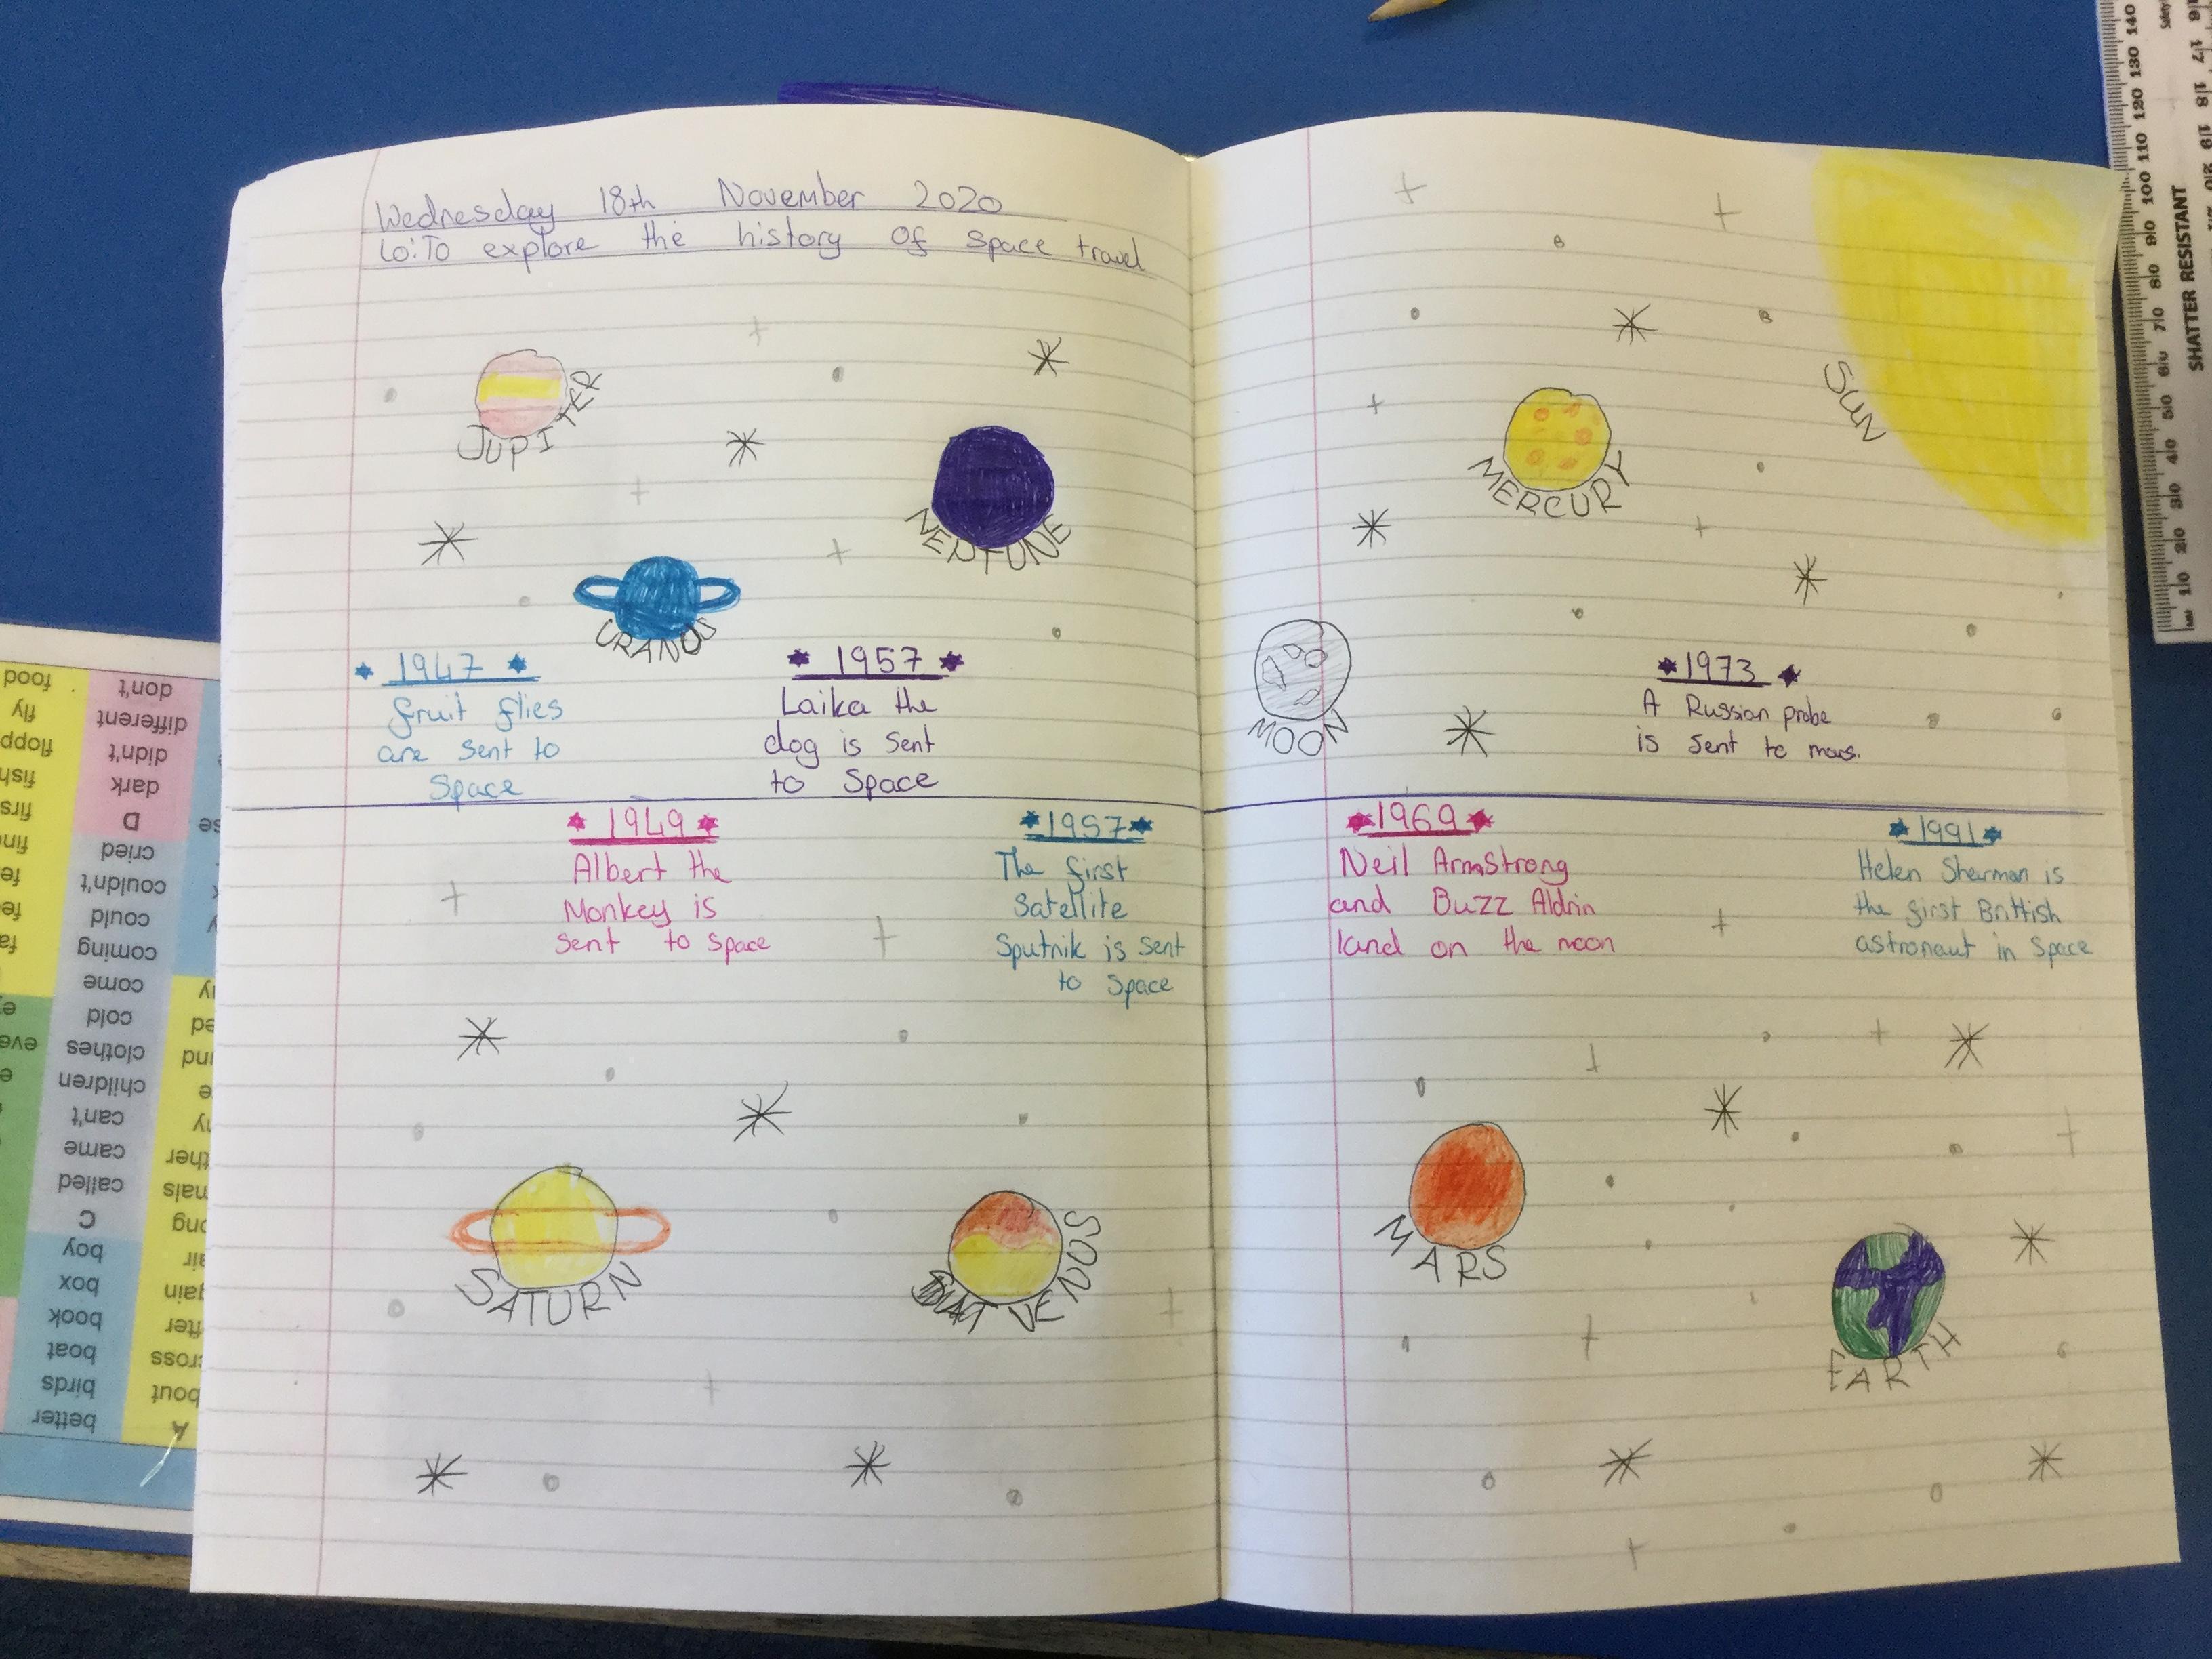 Wednesday 18th November 2020
LO: To explore the history of space travel
JUPITER
NEPTUNE
URANUS
1947
fruit flies
are sent to
Space
1957
Laika the
dog is sent
to Space
1949
Albert the
Monkey is
sent to space
1957
The first
Satellite
Sputnik is sent
to space
SATURN
VENUS
SUN
MERCURY
MOON
1973
A Russian probe
is sent to mars.
1969
Neil ArmStrong
and Buzz Aldrin
land on the moon
1991
Helen Sharman is
the first Brittish
astronaut in space
MARS
EARTH
A
better
birds
boat
book
box
boy
C
called
came
can't
children
clothes
cold
come
coming
could
couldn't
cried
D
dark
didn't
different
don't
fly
food
SHATTER RESISTANT
mm 10 20 30 40 50 60 70 80 90 100 110 120 130 140